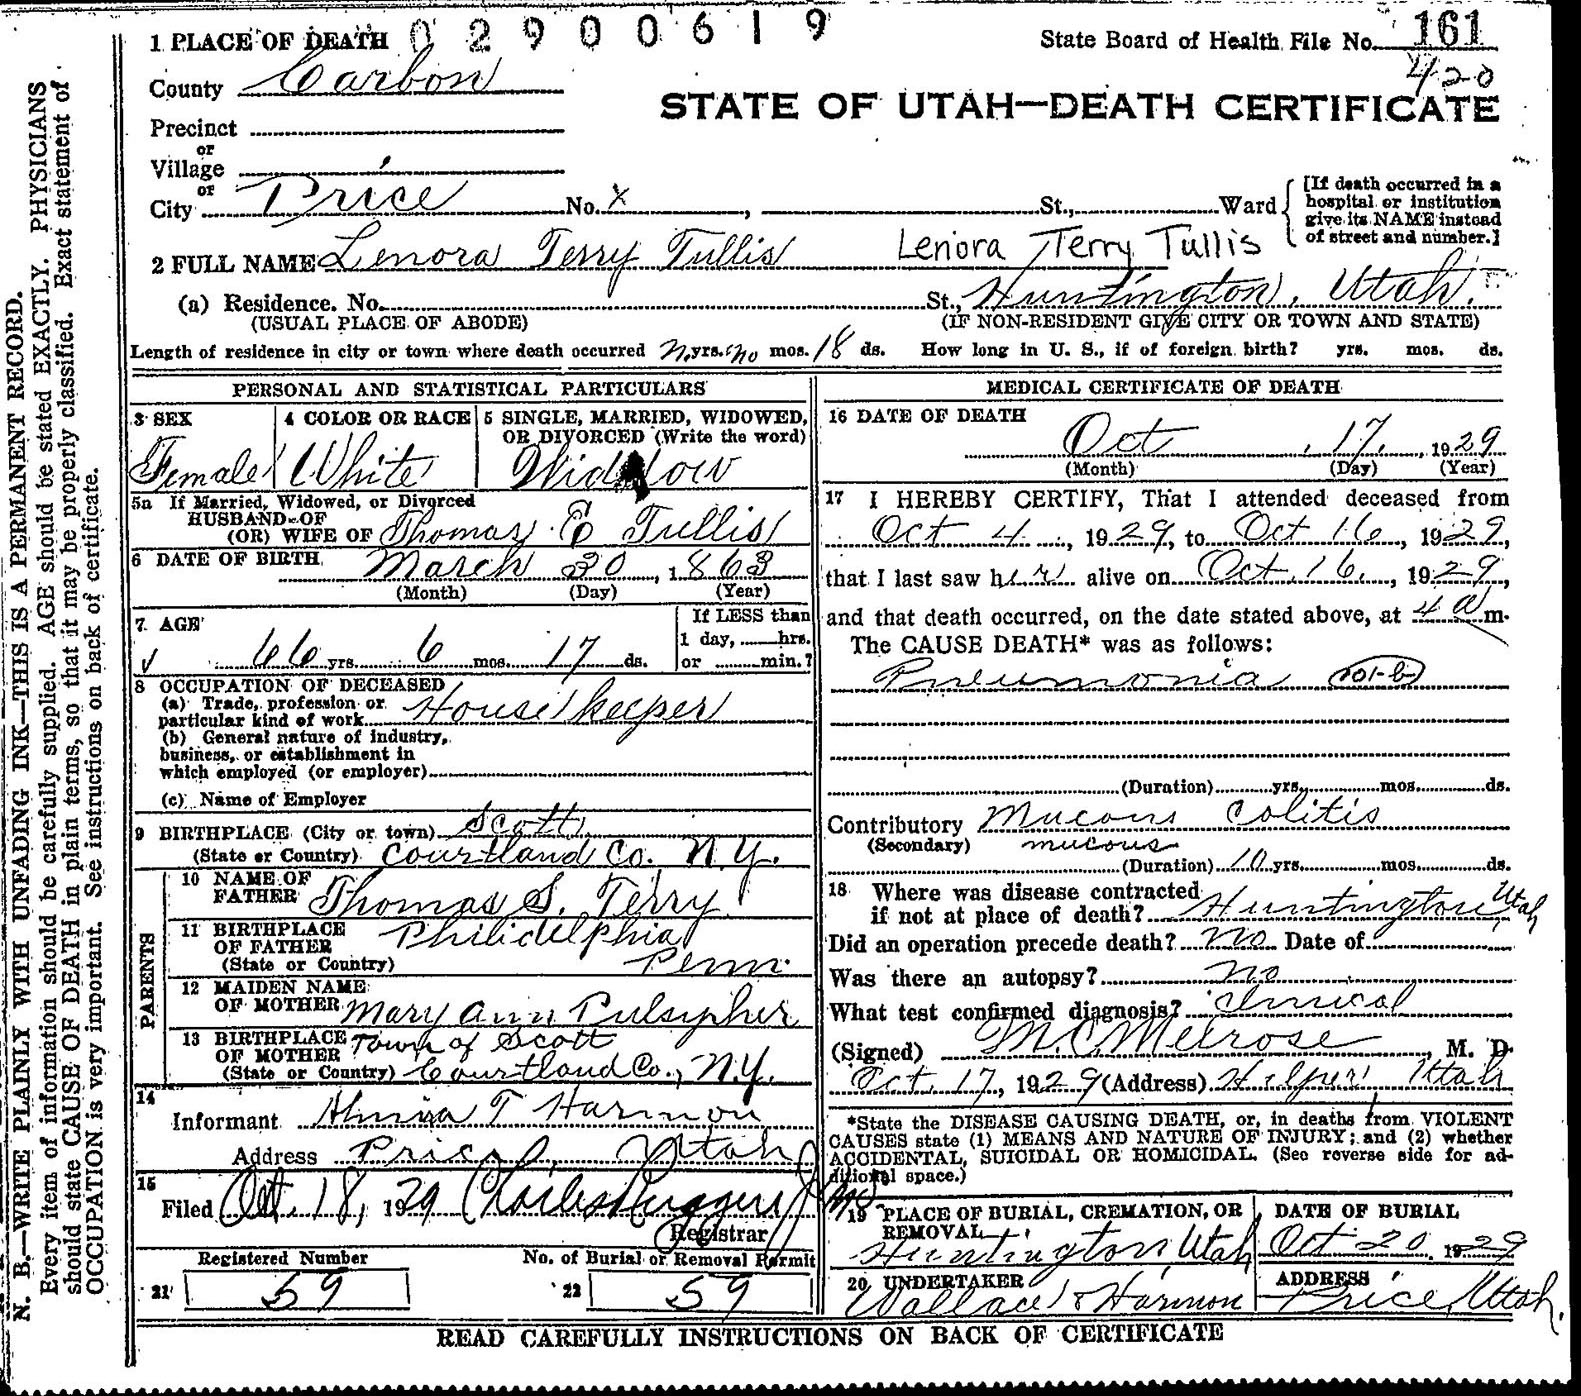 1 PLACE OF DEATH 02900619
State Board of Health File No. 161
420
County Carbon
STATE OF UTAH—DEATH CERTIFICATE
Precinct
or
Village
or
City Price No. X , St., Ward
[If death occurred in a
hospital or institution
give its NAME instead
of street and number.]
2 FULL NAME Lenora Terry Tullis Lenora Terry Tullis
(a) Residence. No. St., Huntington, Utah.
(USUAL PLACE OF ABODE) (IF NON-RESIDENT GIVE CITY OR TOWN AND STATE)
Length of residence in city or town where death occurred n. yrs. no mos. 18 ds. How long in U. S., if of foreign birth? yrs. mos. ds.
PERSONAL AND STATISTICAL PARTICULARS
3 SEX 4 COLOR OR RACE 5 SINGLE, MARRIED, WIDOWED,
OR DIVORCED (Write the word)
Female White Widow
5a If Married, Widowed, or Divorced
HUSBAND OF
(OR) WIFE OF Thomas E Tullis
6 DATE OF BIRTH March 30, 1863
(Month) (Day) (Year)
7. AGE If LESS than
1 day, hrs.
66 yrs. 6 mos. 17 ds. or min.?
8 OCCUPATION OF DECEASED
(a) Trade, profession or
particular kind of work House keeper
(b) General nature of industry,
business, or establishment in
which employed (or employer)
(c) Name of Employer
9 BIRTHPLACE (City or town) Scott,
(State or Country) Courtland Co. N.Y.
PARENTS
10 NAME OF
FATHER Thomas S. Terry
11 BIRTHPLACE
OF FATHER Philidelphia
(State or Country) Penn.
12 MAIDEN NAME
OF MOTHER Mary Ann Pulsipher
13 BIRTHPLACE
OF MOTHER Town of Scott
(State or Country) Courtland Co., N.Y.
14
Informant T Harmon
Address Price, Utah
15
Filed Oct. 18, 1929
Registrar
Registered Number No. of Burial or Removal Permit
21 59 22 59
MEDICAL CERTIFICATE OF DEATH
16 DATE OF DEATH
Oct 17, 1929
(Month) (Day) (Year)
17 I HEREBY CERTIFY, That I attended deceased from
Oct 4, 1929, to Oct 16, 1929,
that I last saw her alive on Oct. 16, 1929,
and that death occurred, on the date stated above, at 4 a m.
The CAUSE DEATH* was as follows:
Pneumonia 101-b
(Duration) yrs. mos. ds.
Contributory Mucous Colitis
(Secondary) mucous
(Duration) 10 yrs. mos. ds.
18 Where was disease contracted
if not at place of death? Huntington Utah
Did an operation precede death? No Date of
Was there an autopsy? no
What test confirmed diagnosis? clinical
(Signed) M.C. Melrose M. D.
Oct. 17, 1929 (Address) Helper Utah
*State the DISEASE CAUSING DEATH, or, in deaths from VIOLENT
CAUSES state (1) MEANS AND NATURE OF INJURY; and (2) whether
ACCIDENTAL, SUICIDAL OR HOMICIDAL. (See reverse side for ad-
ditional space.)
19 PLACE OF BURIAL, CREMATION, OR
REMOVAL
Huntington, Utah
DATE OF BURIAL
Oct 20 1929
20 UNDERTAKER
Wallace & Harmon
ADDRESS
Price, Utah.
READ CAREFULLY INSTRUCTIONS ON BACK OF CERTIFICATE
N. B.—WRITE PLAINLY WITH UNFADING INK—THIS IS A PERMANENT RECORD.
Every item of information should be carefully supplied. AGE should be stated EXACTLY. PHYSICIANS
should state CAUSE OF DEATH in plain terms, so that it may be properly classified. Exact statement of
OCCUPATION is very important. See instructions on back of certificate.